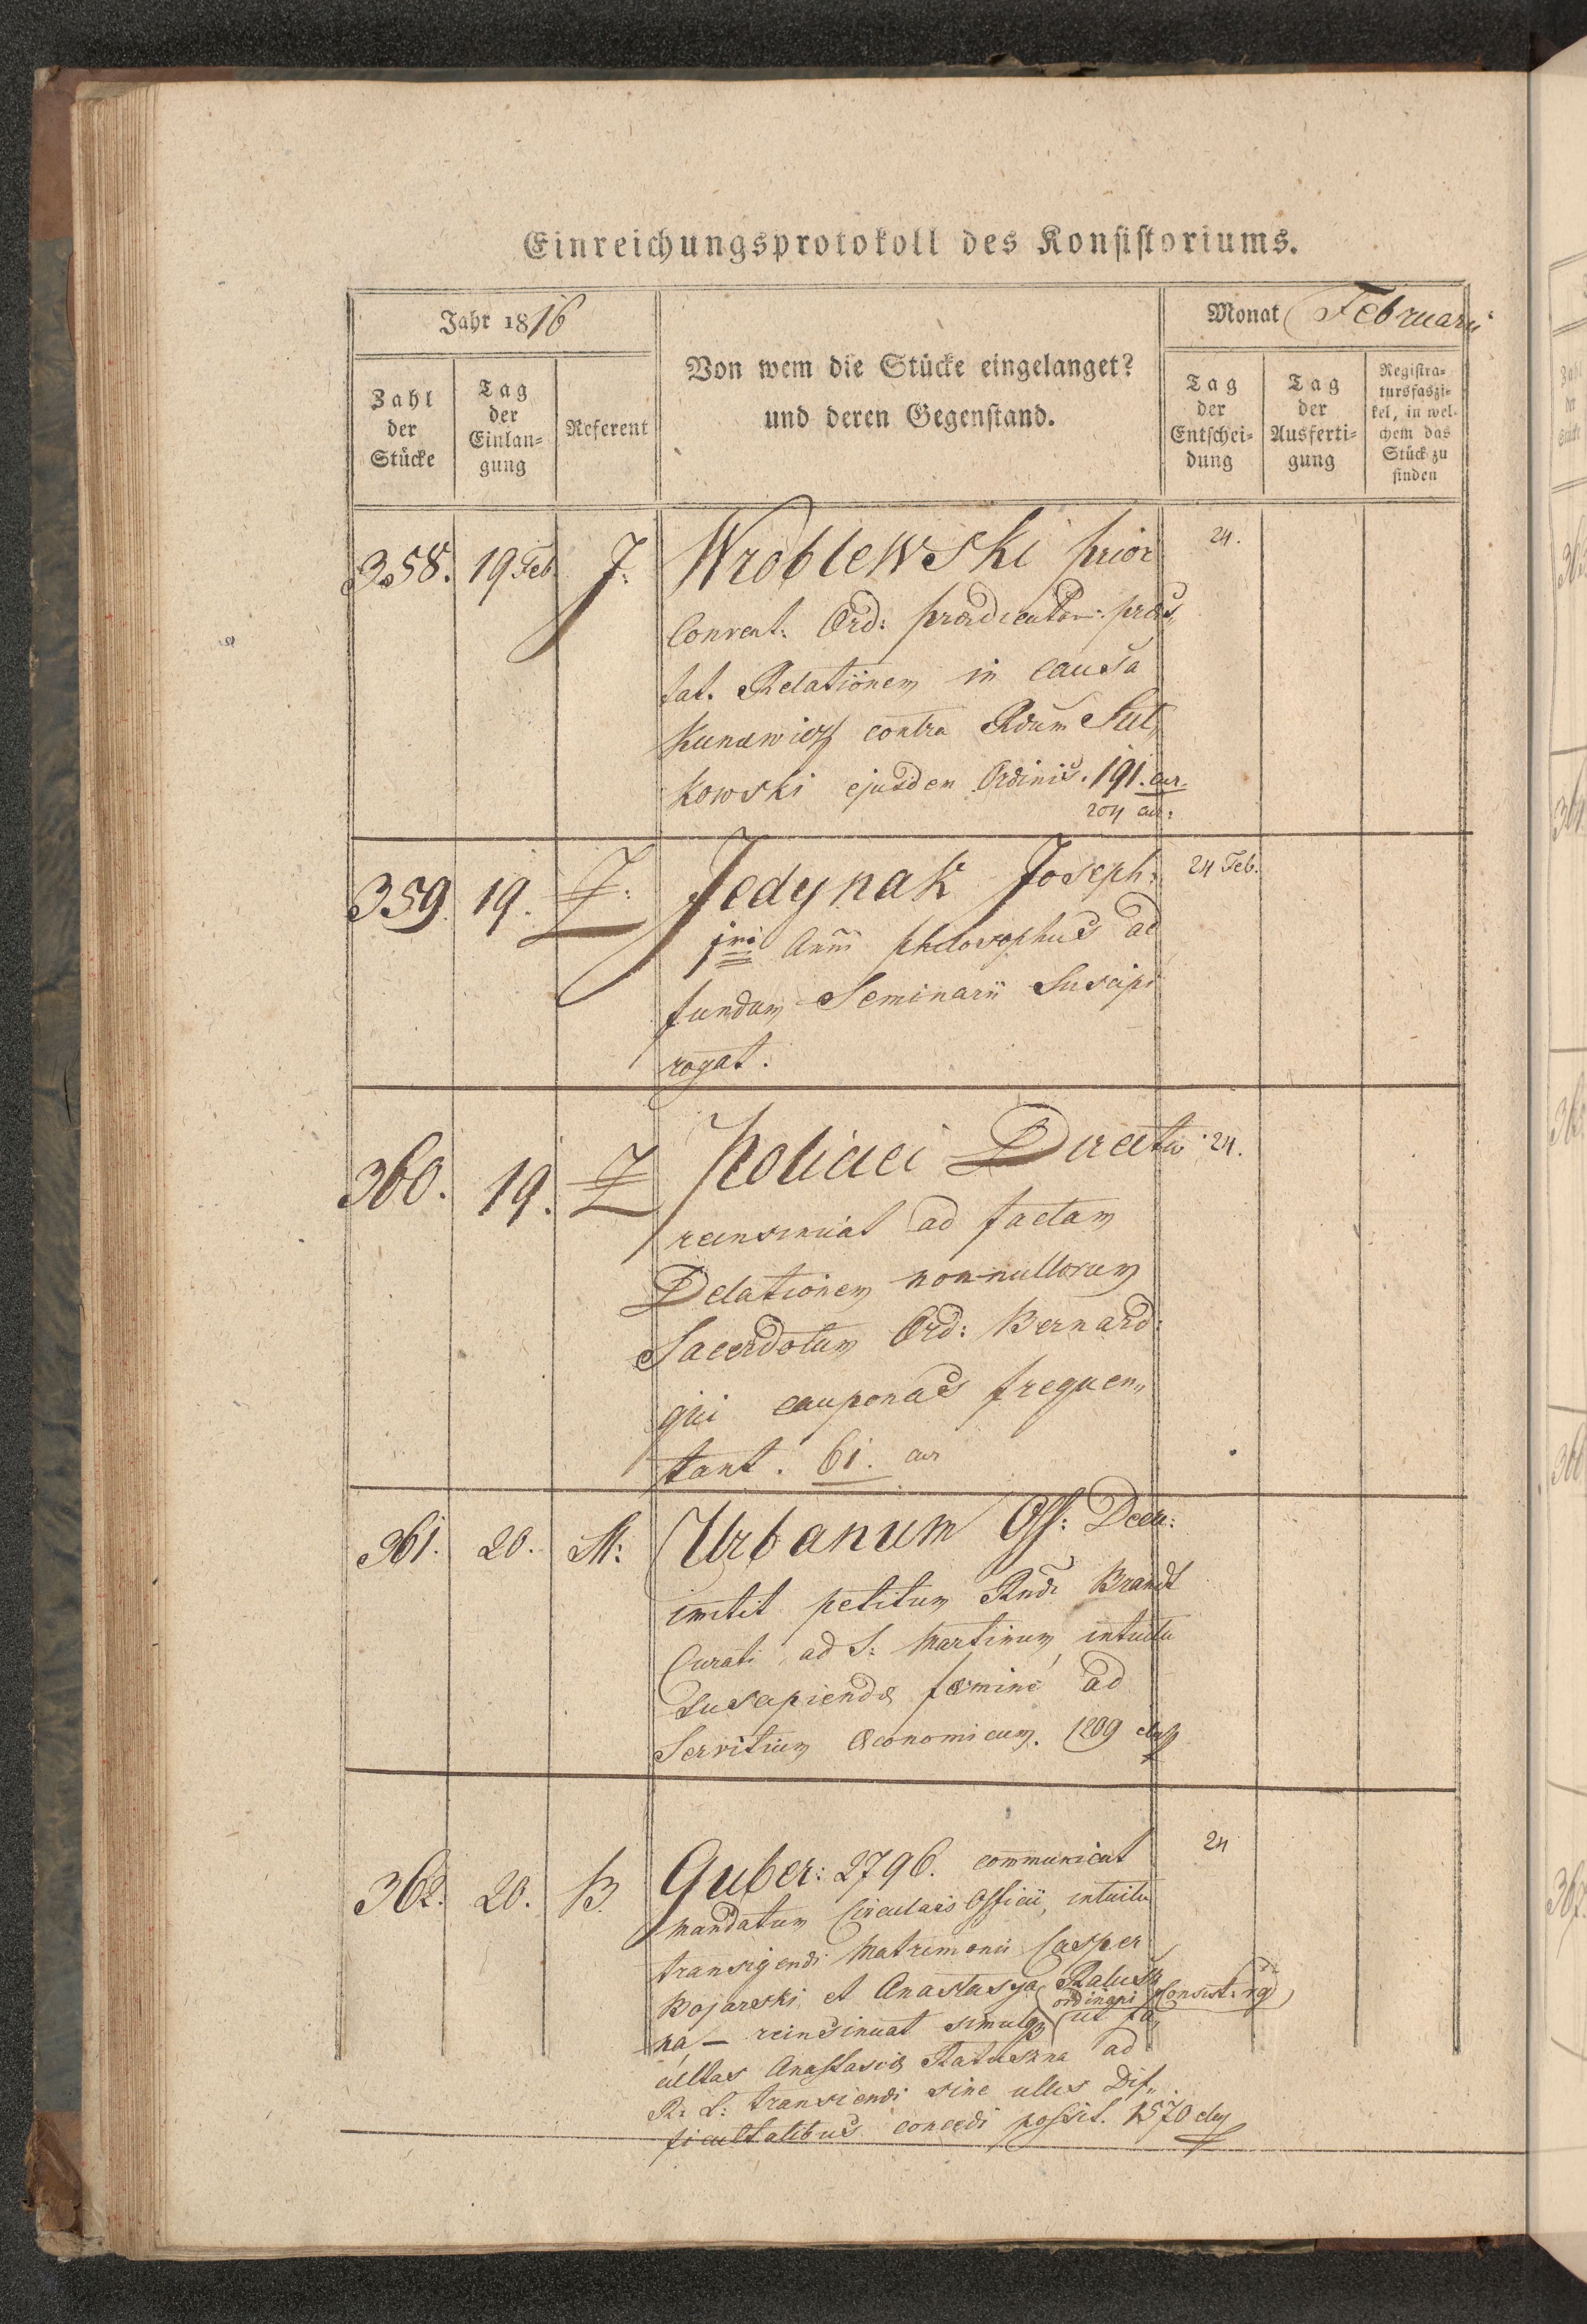 Einreichungsprotokoll des Konsistoriums.
Jahr 1816
Monat Februarii
Von wem die Stücke eingelanget?
und deren Gegenstand.
Zahl
der
Stücke
Tag
der
Einlan=
gung
Referent
Tag
der
Entschei=
dung
Tag
der
Ausferti=
gung
Registra=
tursfaszi=
kel, in wel=
chem das
Stück zu
finden
358. 19 Feb. J: Wroblewski prior 24.
Convent. Ord: praedicator: praes„
tat. Relationem in causa
contra Rdum Sut„
kowski ejusdem Ordinis. 191. cur.
204 cur:
359. 19. Z: Jedynak Joseph: 24 Feb.
Anni philosophus ad
fundum Seminarii Suscipi
rogat.
360. 19. Z Policiei Direct 24.
reinsinuat ad factam
Delationem nonnullorum
Sacerdotum Ord: Bernard:
qui cauponas frequen„
tant. 61. cur
361. 20. M: Urbanum Off: Dec:
petitum Rndi Brandt
Curati ad S: Martinum, intuitu
Suscipiendae faeminae ad
Servitium Oeconomicum. 1209
362. 20. B. Guber: 2796. communicat 24
mandatum Circularis Officii, intuitu
transigendi Matrimonii Casper
Bojarski et Anastasya Ratusz
ordinari Consist: rg
na — reinsinuat simulq ut fa„
cultas Anastasiae Ratuszna ad
R: L: transiendi sine ullis Dif„
ficultatibus concedi possit. 1570